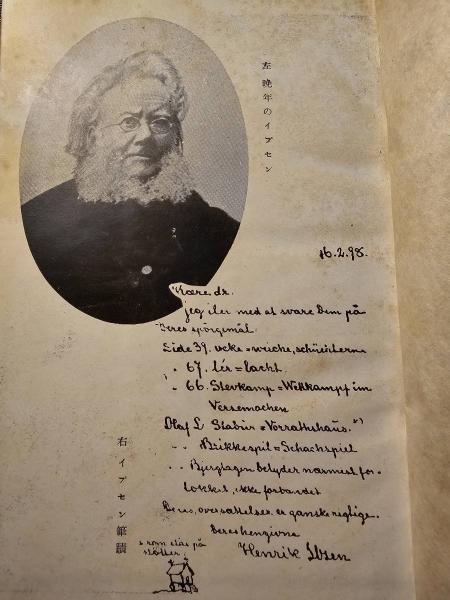 左 晩年のイプセン
16.2.98.
Kære dr.
jeg iler med at svare Dem på
Deres spörgsmål.
Side 39. veke = weiche,
" 67. lér = lacht.
" 66. Stevkamp = Wettkampf im
Versemachen
Olaf L. Stabur = Vorrathshaus. *)
" " Brikkespil = Schachspiel
" " Bjergtagen betyder nærmest for-
lokket, ikke forbandet
Deres oversættelser er ganske rigtige.
Deres hengivne
Henrik Ibsen
på
stötter:
右 イプセン筆蹟